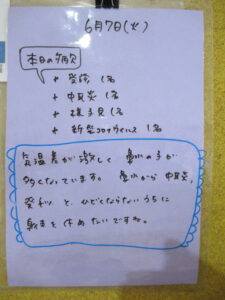 6月7日(火)
本日の病欠
+ 発疹 1名
+ 中耳炎 1名
+ 様子見 1名
+ 新型コロナウイルス 1名
気温差が激しく 鼻水の子が
多くなっています。 鼻水から 中耳炎,
発熱 と、ひどくならないうちに
身を休めたいですね。